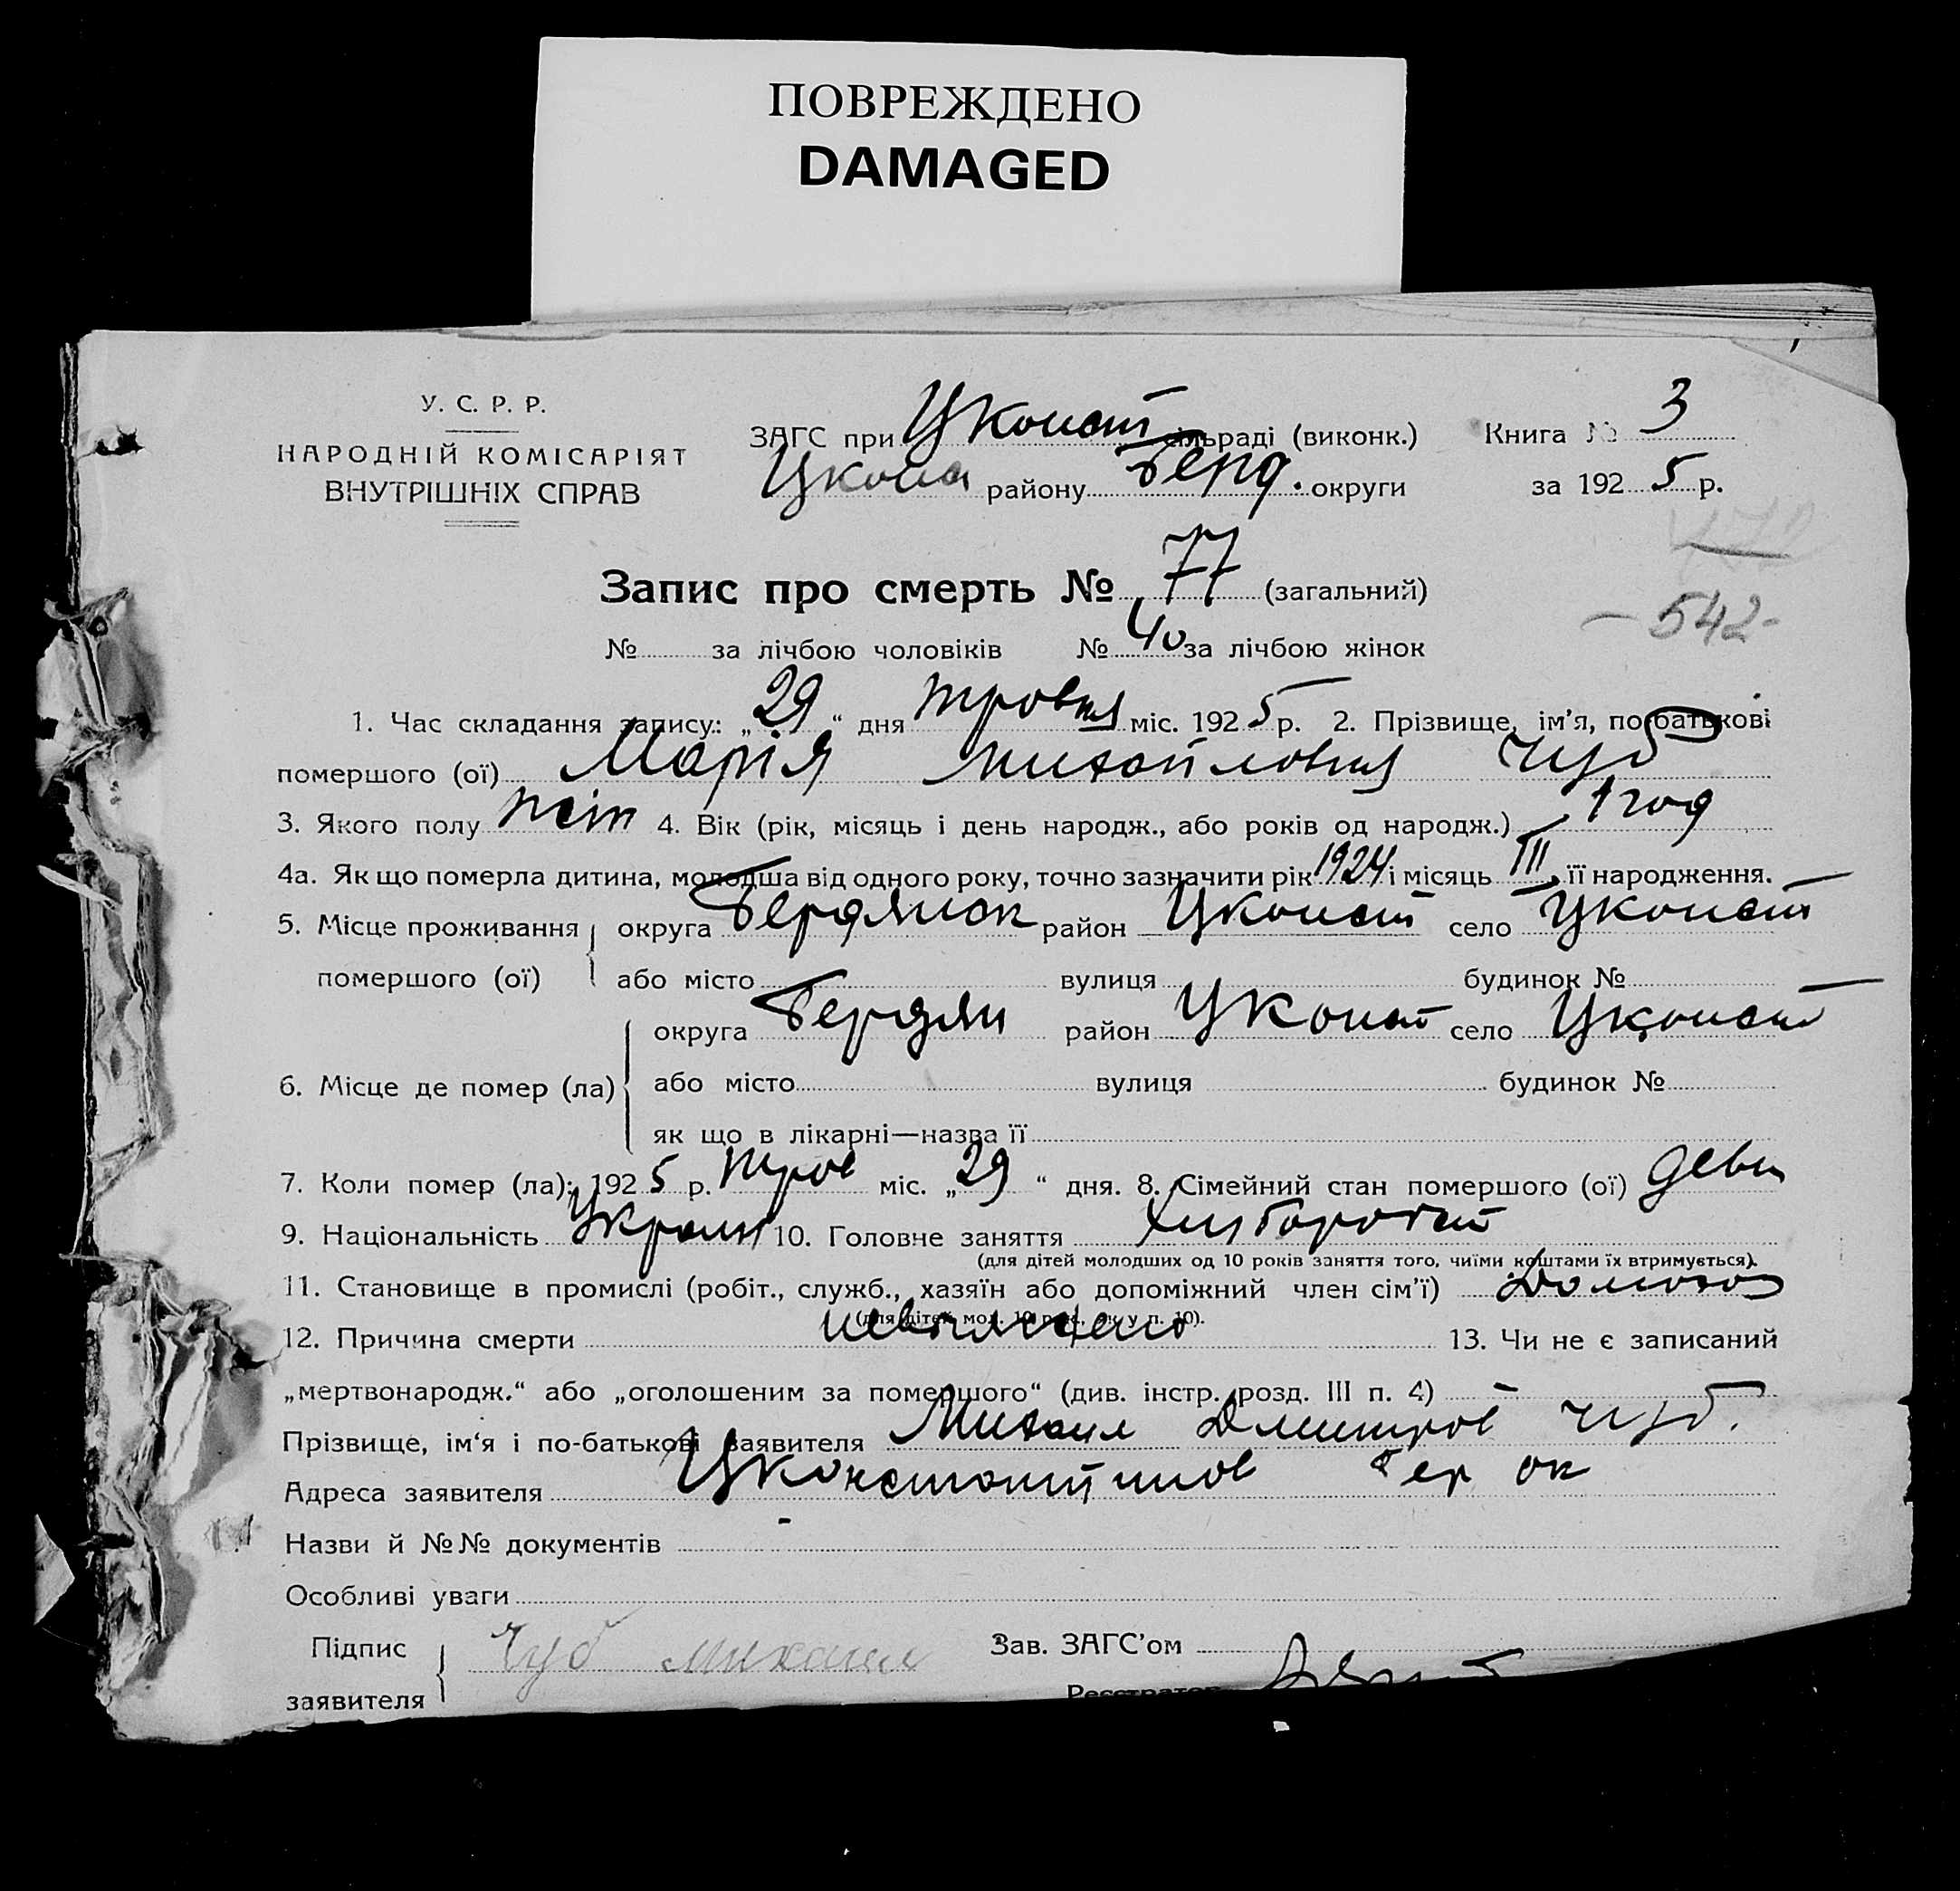 ПОВРЕЖДЕНО
DAMAGED
У. С. Р. Р.
НАРОДНІЙ КОМІСАРІЯТ
ВНУТРІШНІХ СПРАВ
ЗАГС при Цконст сільраді (виконк.)
Цконс району Берд. округи
Книга № 3
за 1925 р.
Запис про смерть № 77 (загальний)
- 542 -
№ за лічбою чоловіків № 40 за лічбою жінок
1. Час складання запису: „29“ дня тровня міс. 1925 р. 2. Прізвище, ім’я, по-батькові
помершого (ої) Марія Михайловня Чуб
3. Якого полу 4. Вік (рік, місяць і день народж., або років од народж.) 1 год
4а. Як що померла дитина, молодша від одного року, точно зазначити рік 1924 і місяць III її народження.
5. Місце проживання помершого (ої) округа Бердянск район Цконст село Цконст
або місто вулиця будинок №
6. Місце де помер (ла) округа Бердян район Цконст село Цконст
або місто вулиця будинок №
як що в лікарні—назва її
7. Коли помер (ла): 1925 р. тров міс. „29“ дня. 8. Сімейний стан помершого (ої) деви
9. Національність Украин 10. Головне заняття
(для дітей молодших од 10 років заняття того, чиїми коштами їх втримується).
11. Становище в промислі (робіт., служб., хазяїн або допоміжний член сім’ї) Домохоз
(для дітей мол. 10 рок., як у п. 10).
12. Причина смерти 13. Чи не є записаний
„мертвонародж.“ або „оголошеним за помершого“ (див. інстр. розд. III п. 4) -
Прізвище, ім‘я і по-батькові заявителя Михаил Дмитров Чуб.
Адреса заявителя Цконстантинов Бер ок
Назви й №№ документів -
Особливі уваги
Підпис заявителя Чуб михаил
Зав. ЗАГС’ом
Реєстратор